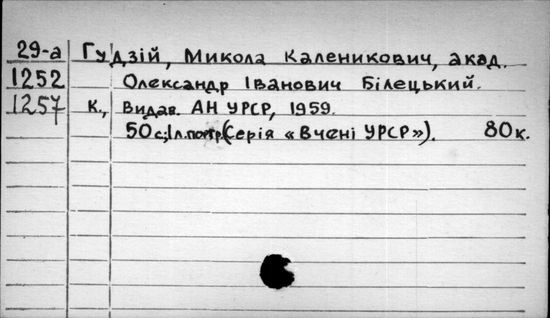 29-а Гудзій, Микола Каленикович, акад.
1252 Олександр Іванович Білецький.
1257 К., Видав. АН УРСР, 1959.
50 с; 1 л. портр (Серія «Вчені УРСР»). 80 к.